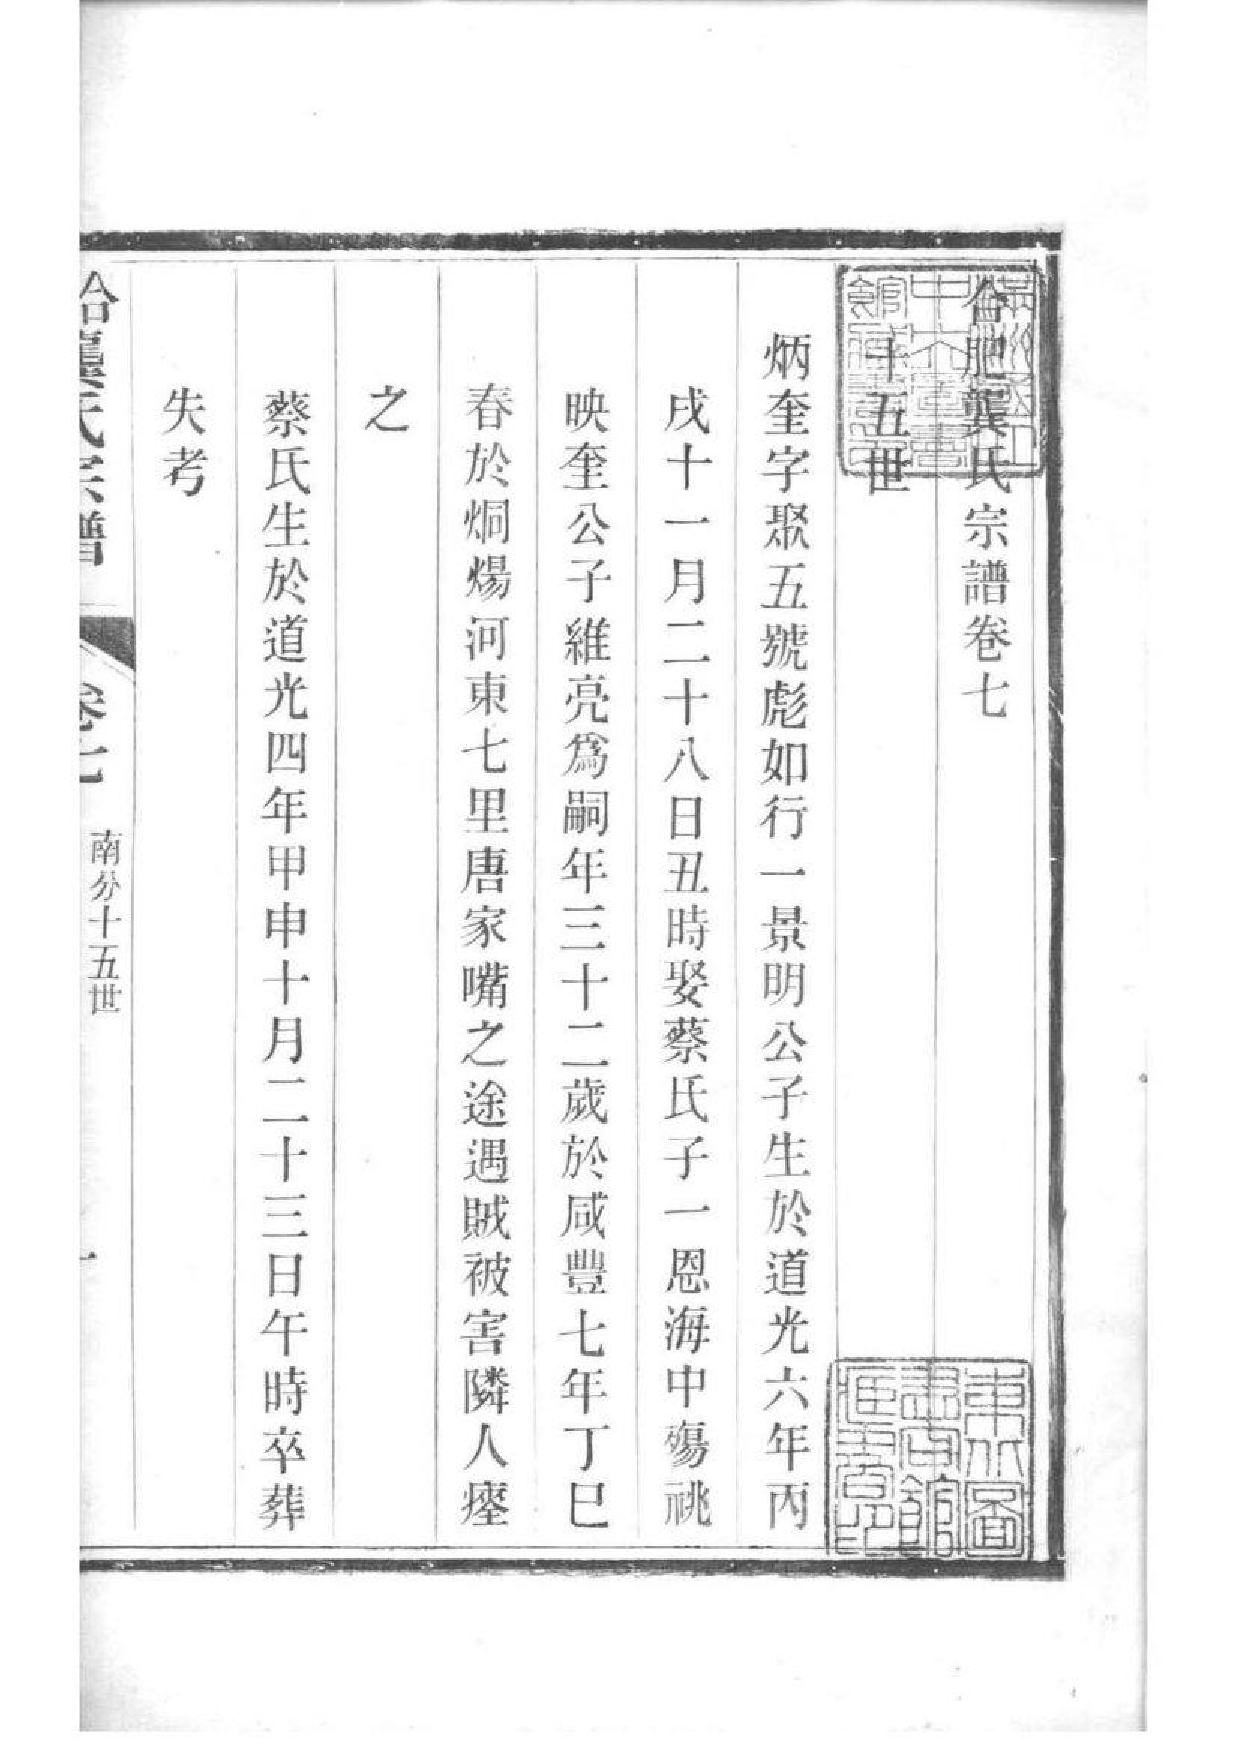 合肥龔氏宗譜卷七
十五世
炳奎字聚五號彪如行一景明公子生於道光六年丙
戌十一月二十八日丑時娶蔡氏子一恩海中殤祧
映奎公子維亮爲嗣年三十二歲於咸豐七年丁巳
春於烔煬河東七里唐家嘴之途遇賊被害隣人瘞
之
蔡氏生於道光四年甲申十月二十三日午時卒葬
失考
龔氏宗譜
卷七
南分十五世
一